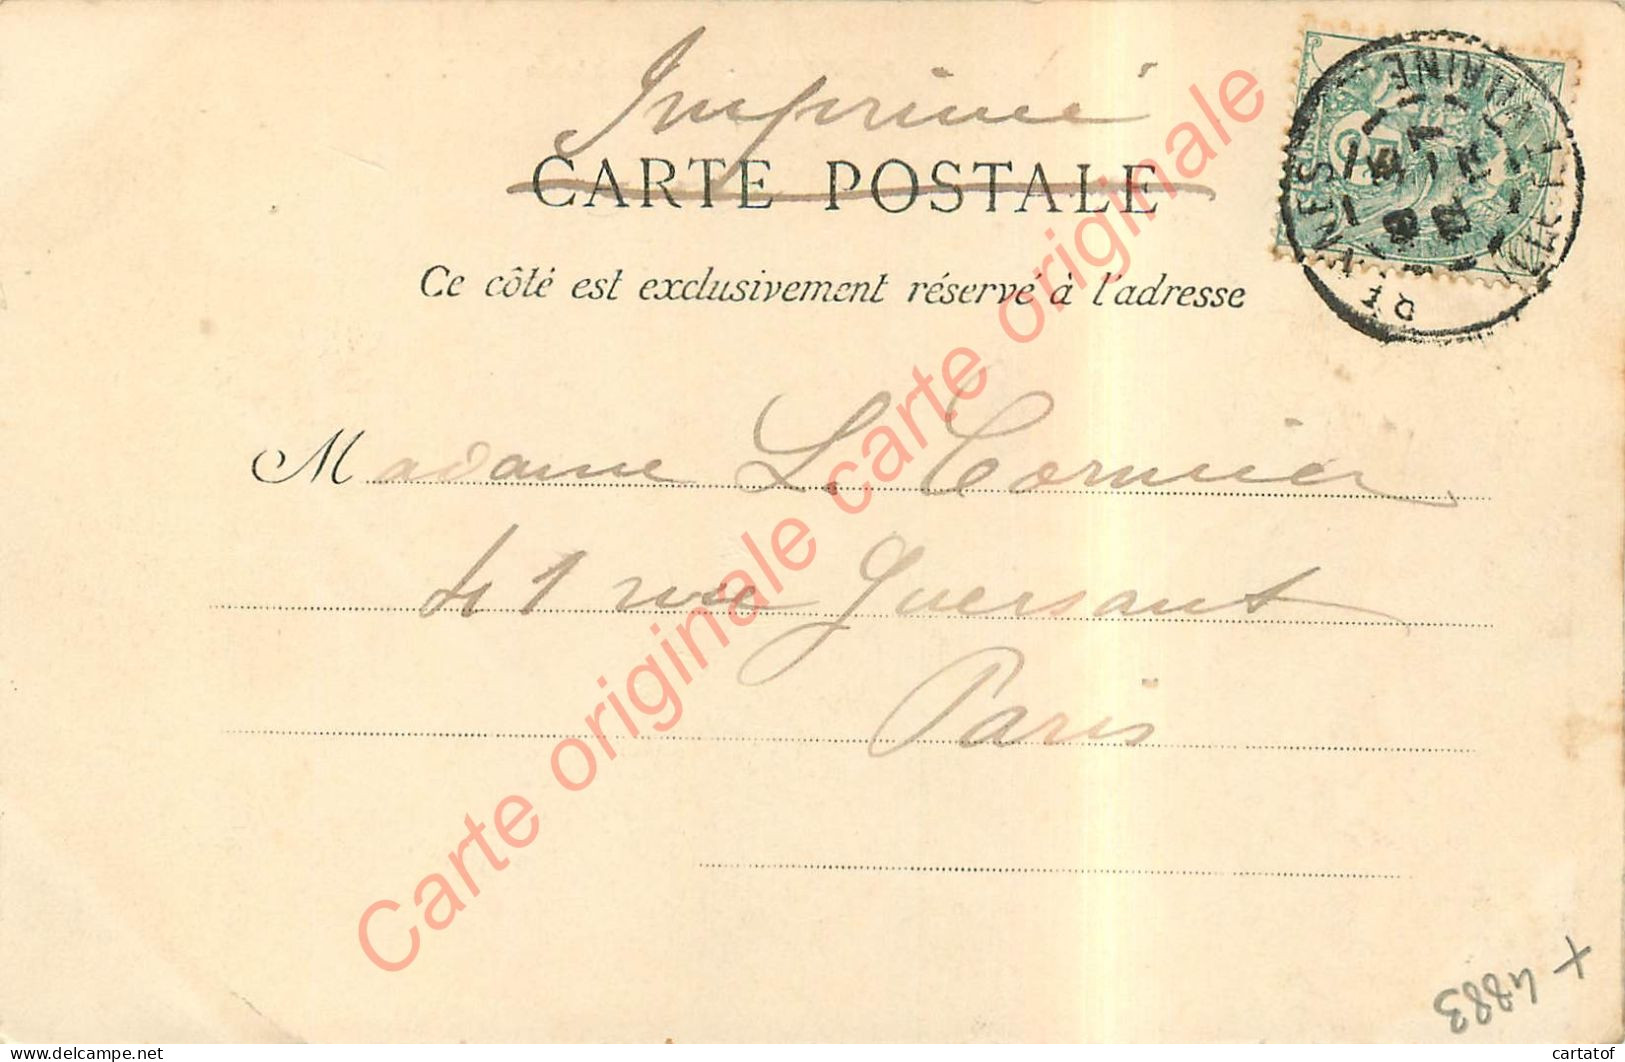 Imprimé
CARTE POSTALE
Ce côté est exclusivement réservé à l'adresse
Madame L. Cormier
41 rue Guersant
Paris
Carte originale carte originale
RENNES
ILLE-ET-VILAINE
+ 4883
cartatof